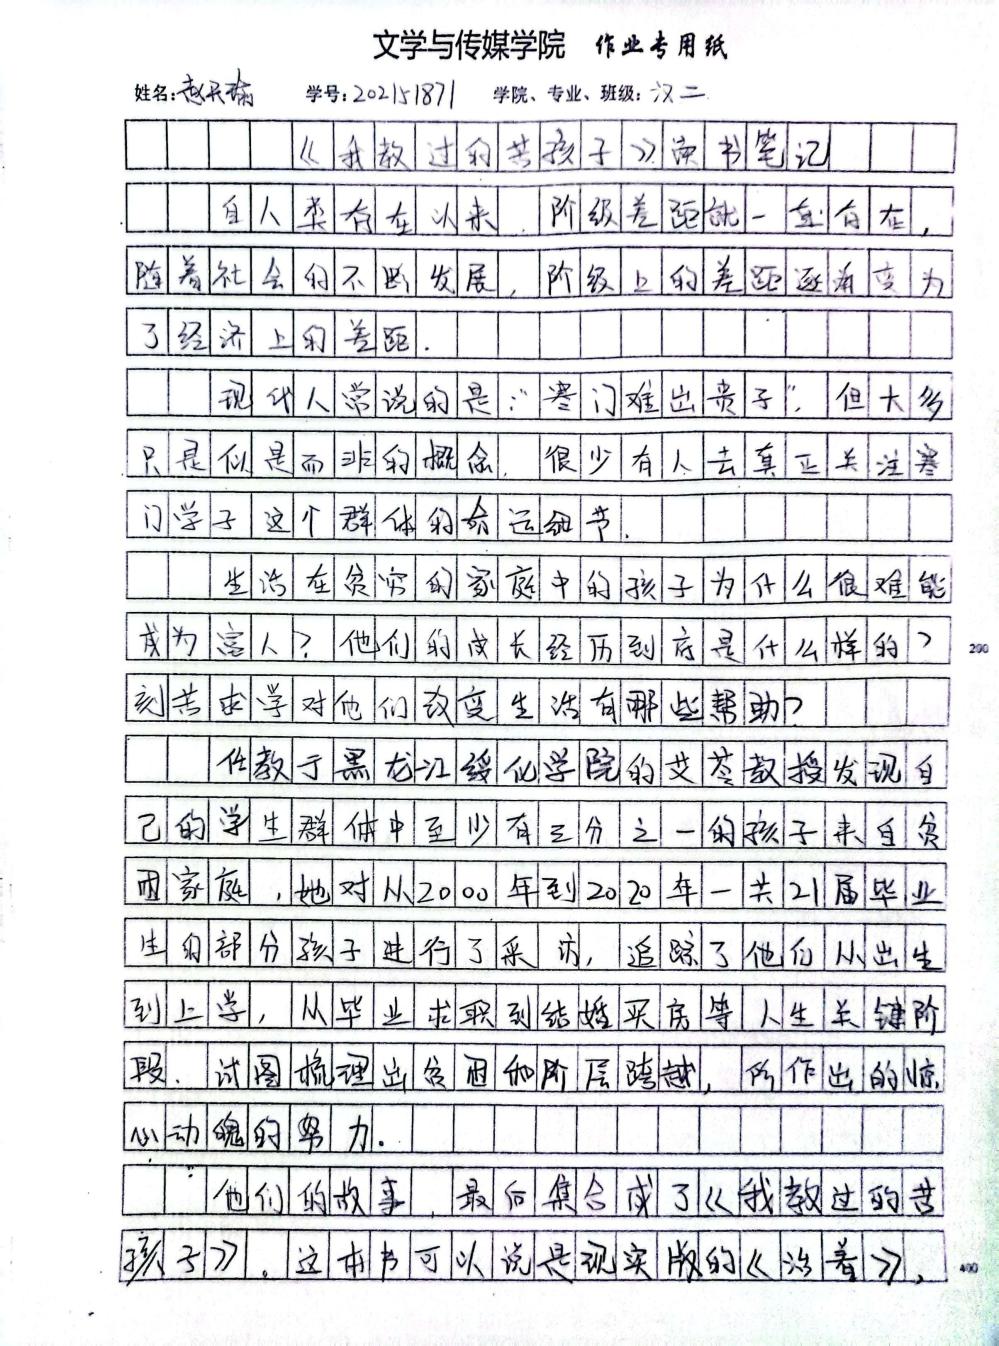 文学与传媒学院 作业专用纸
姓名:赵天瑜 学号:202151871 学院、专业、班级:汉二
《我教过的苦孩子》读书笔记
自人类存在以来,阶级差距就一直存在,
随着社会的不断发展,阶级上的差距逐渐变为
了经济上的差距.
现代人常说的是:“寒门难出贵子”,但大多
只是似是而非的概念,很少有人去真正关注寒
门学子这个群体的命运细节.
生活在贫穷的家庭中的孩子为什么很难能
成为富人?他们的成长经历到底是什么样的?
200
刻苦求学对他们改变生活有哪些帮助?
任教于黑龙江绥化学院的艾苓教授发现自
己的学生群体中至少有三分之一的孩子来自贫
困家庭,她对从2000年到2020年一共21届毕业
生的部分孩子进行了采访,追踪了他们从出生
到上学,从毕业求职到结婚买房等人生关键阶
段.试图梳理出贫困和阶层跨越,所作出的惊
心动魄的努力.
他们的故事,最后集合成了《我教过的苦
孩子》.这本书可以说是现实版的《活着》,
400